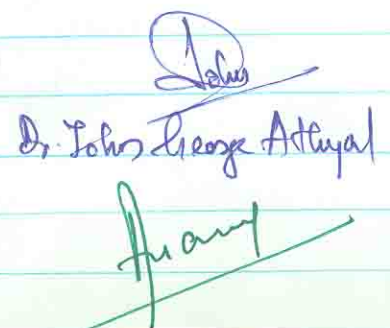 John
Dr. John George Athyal